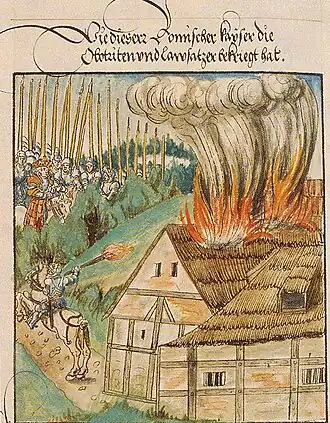 Wie dieser Römischer kayser die
Obotriten vnd Lawsatzer bekriegt hat.